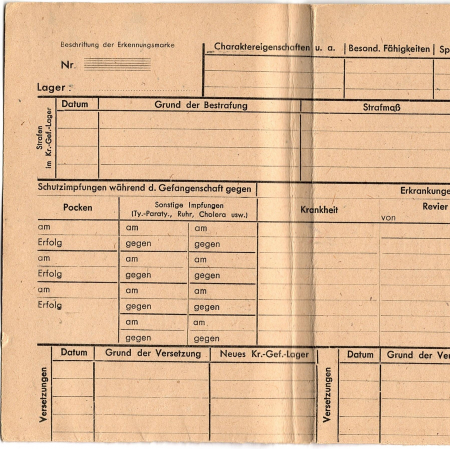 Beschriftung der Erkennungsmarke
Nr.
Charaktereigenschaften u. a. Besond. Fähigkeiten Sp
Lager:
Strafen im Kr.-Gef.-Lager
Datum Grund der Bestrafung Strafmaß
Schutzimpfungen während d. Gefangenschaft gegen Erkrankunge
Pocken Sonstige Impfungen Krankheit Revier
(Ty.-Paraty., Ruhr, Cholera usw.) von
am am am
Erfolg gegen gegen
am am am
Erfolg gegen gegen
am am am
Erfolg gegen gegen
am am
gegen gegen
Versetzungen
Datum Grund der Versetzung Neues Kr.-Gef.-Lager
Versetzungen
Datum Grund der Ver